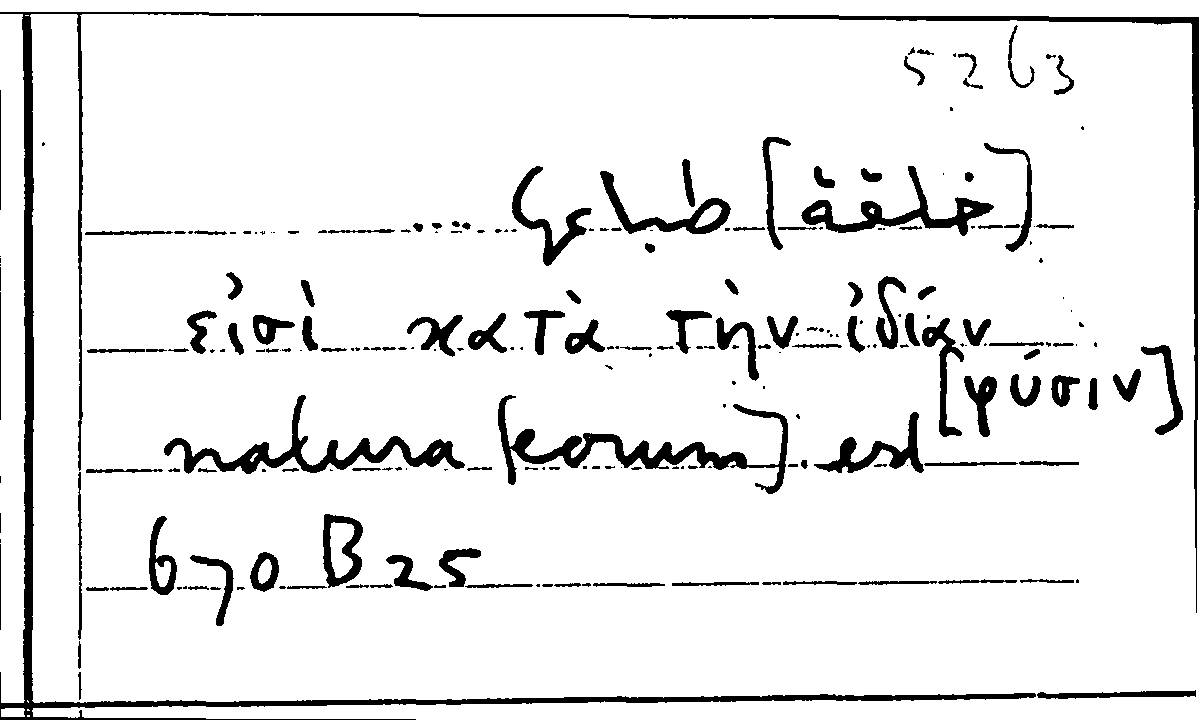 5263
[خلقة] طباعى ....
εἰσὶ κατὰ τὴν ἰδίαν
[φύσιν]
natura [eorum] est
670 B 25